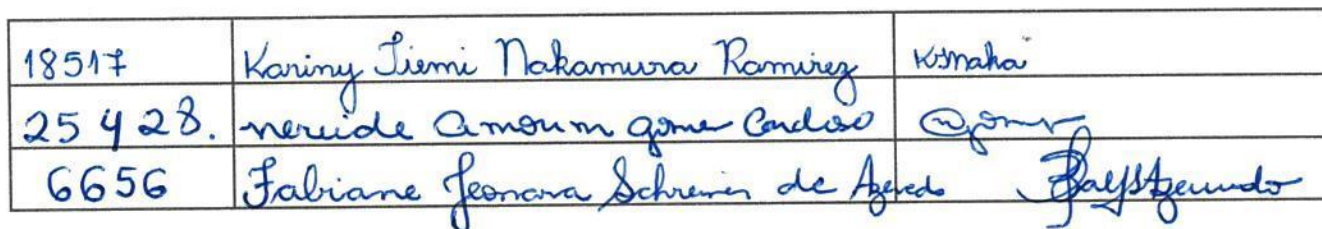 18517 Kariny Tiemi Nakamura Ramirez
25428. nereide amorim gomes Cardoso
6656 Fabiane Jeonara Schreiner de Azevedo